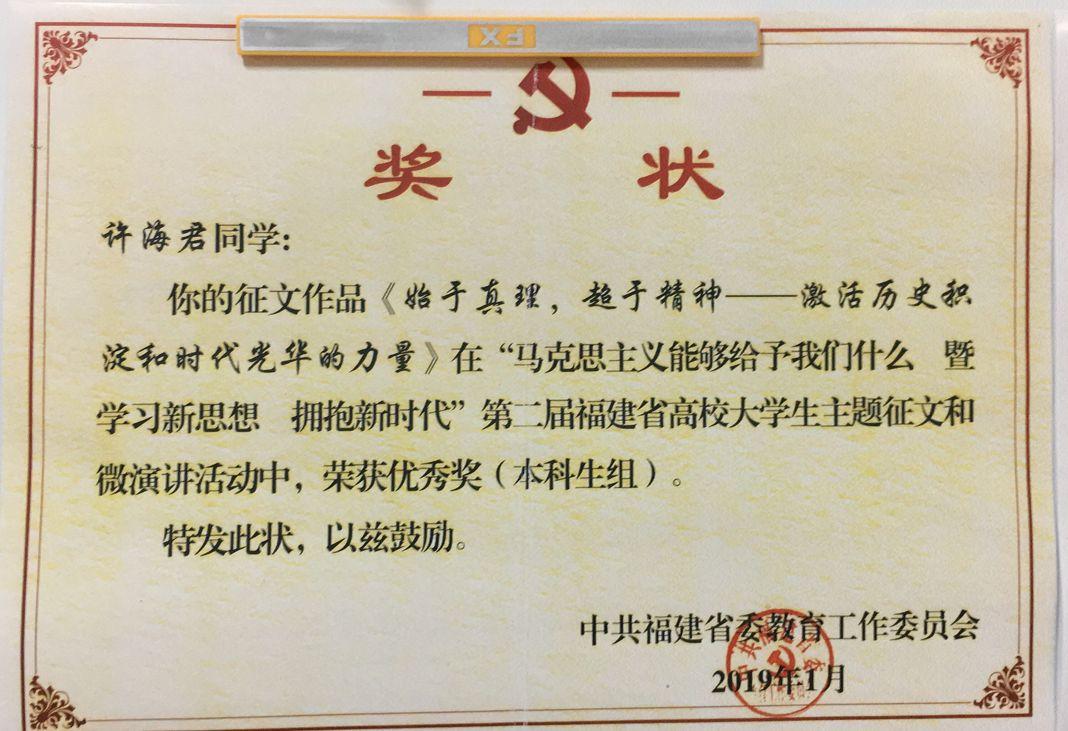 FX
奖 状
许海君同学:
你的征文作品《始于真理，超于精神——激活历史积
淀和时代光华的力量》在“马克思主义能够给予我们什么 暨
学习新思想 拥抱新时代”第二届福建省高校大学生主题征文和
微演讲活动中，荣获优秀奖（本科生组）。
特发此状，以兹鼓励。
中共福建省委教育工作委员会
2019年1月